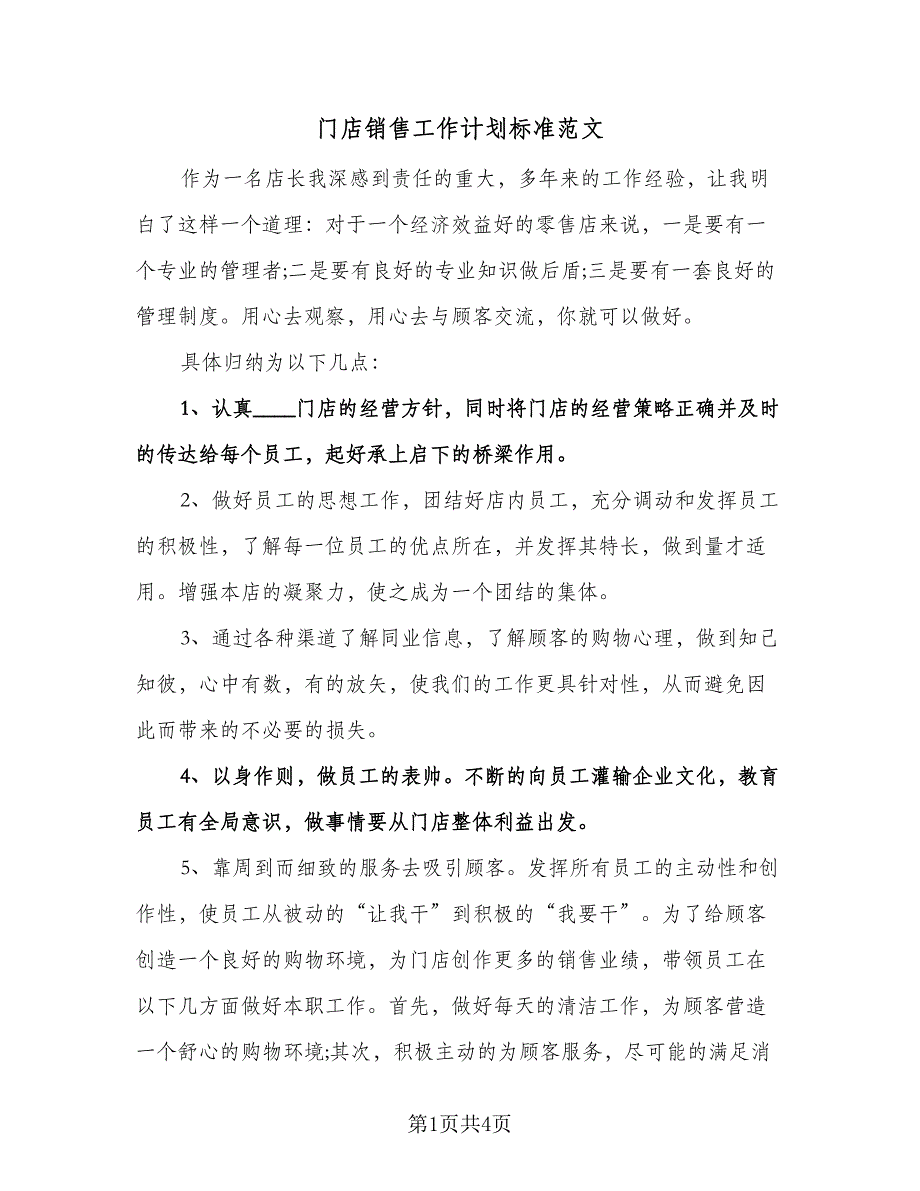 门店销售工作计划标准范文
作为一名店长我深感到责任的重大，多年来的工作经验，让我明
白了这样一个道理：对于一个经济效益好的零售店来说，一是要有一
个专业的管理者;二是要有良好的专业知识做后盾;三是要有一套良好的
管理制度。用心去观察，用心去与顾客交流，你就可以做好。
具体归纳为以下几点：
1、认真____门店的经营方针，同时将门店的经营策略正确并及时
的传达给每个员工，起好承上启下的桥梁作用。
2、做好员工的思想工作，团结好店内员工，充分调动和发挥员工
的积极性，了解每一位员工的优点所在，并发挥其特长，做到量才适
用。增强本店的凝聚力，使之成为一个团结的集体。
3、通过各种渠道了解同业信息，了解顾客的购物心理，做到知己
知彼，心中有数，有的放矢，使我们的工作更具针对性，从而避免因
此而带来的不必要的损失。
4、以身作则，做员工的表帅。不断的向员工灌输企业文化，教育
员工有全局意识，做事情要从门店整体利益出发。
5、靠周到而细致的服务去吸引顾客。发挥所有员工的主动性和创
作性，使员工从被动的“让我干”到积极的“我要干”。为了给顾客
创造一个良好的购物环境，为门店创作更多的销售业绩，带领员工在
以下几方面做好本职工作。首先，做好每天的清洁工作，为顾客营造
一个舒心的购物环境;其次，积极主动的为顾客服务，尽可能的满足消
第1页共4页